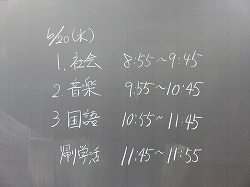 6/20(水)
1. 社会 8:55～9:45
2 音楽 9:55～10:45
3. 国語 10:55～11:45
帰学活 11:45～11:55